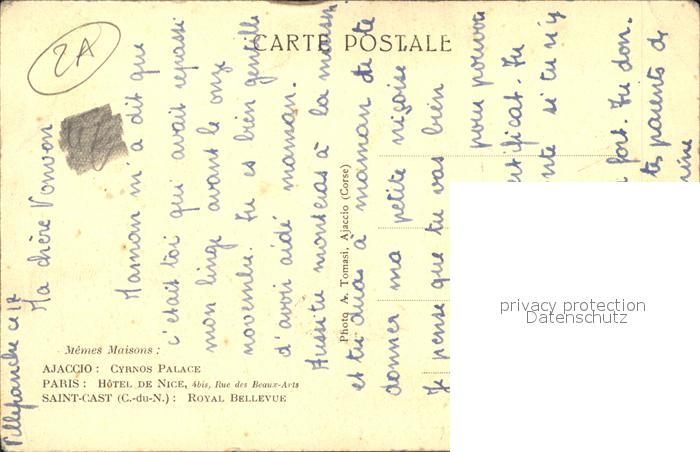 2A
CARTE POSTALE
Villefranche le 17
Ma chère Vonvon
Maman m'a dit que
c'était toi qui avait repassé
mon linge avant le onze
novembre. Tu es bien gentille
d'avoir aidé maman.
Aussi tu monteras à la maison
et tu diras à maman de te
donner ma petite niçoise
Je pense que tu vas bien
pour pouvoir
Tu
si tu n'y
fort. Tu don.
tes parents de
Photo A. Tomasi, Ajaccio (Corse)
Mêmes Maisons :
AJACCIO : CYRNOS PALACE
PARIS : HÔTEL DE NICE, 4bis, Rue des Beaux-Arts
SAINT-CAST (C.-du-N.) : ROYAL BELLEVUE
privacy protection
Datenschutz